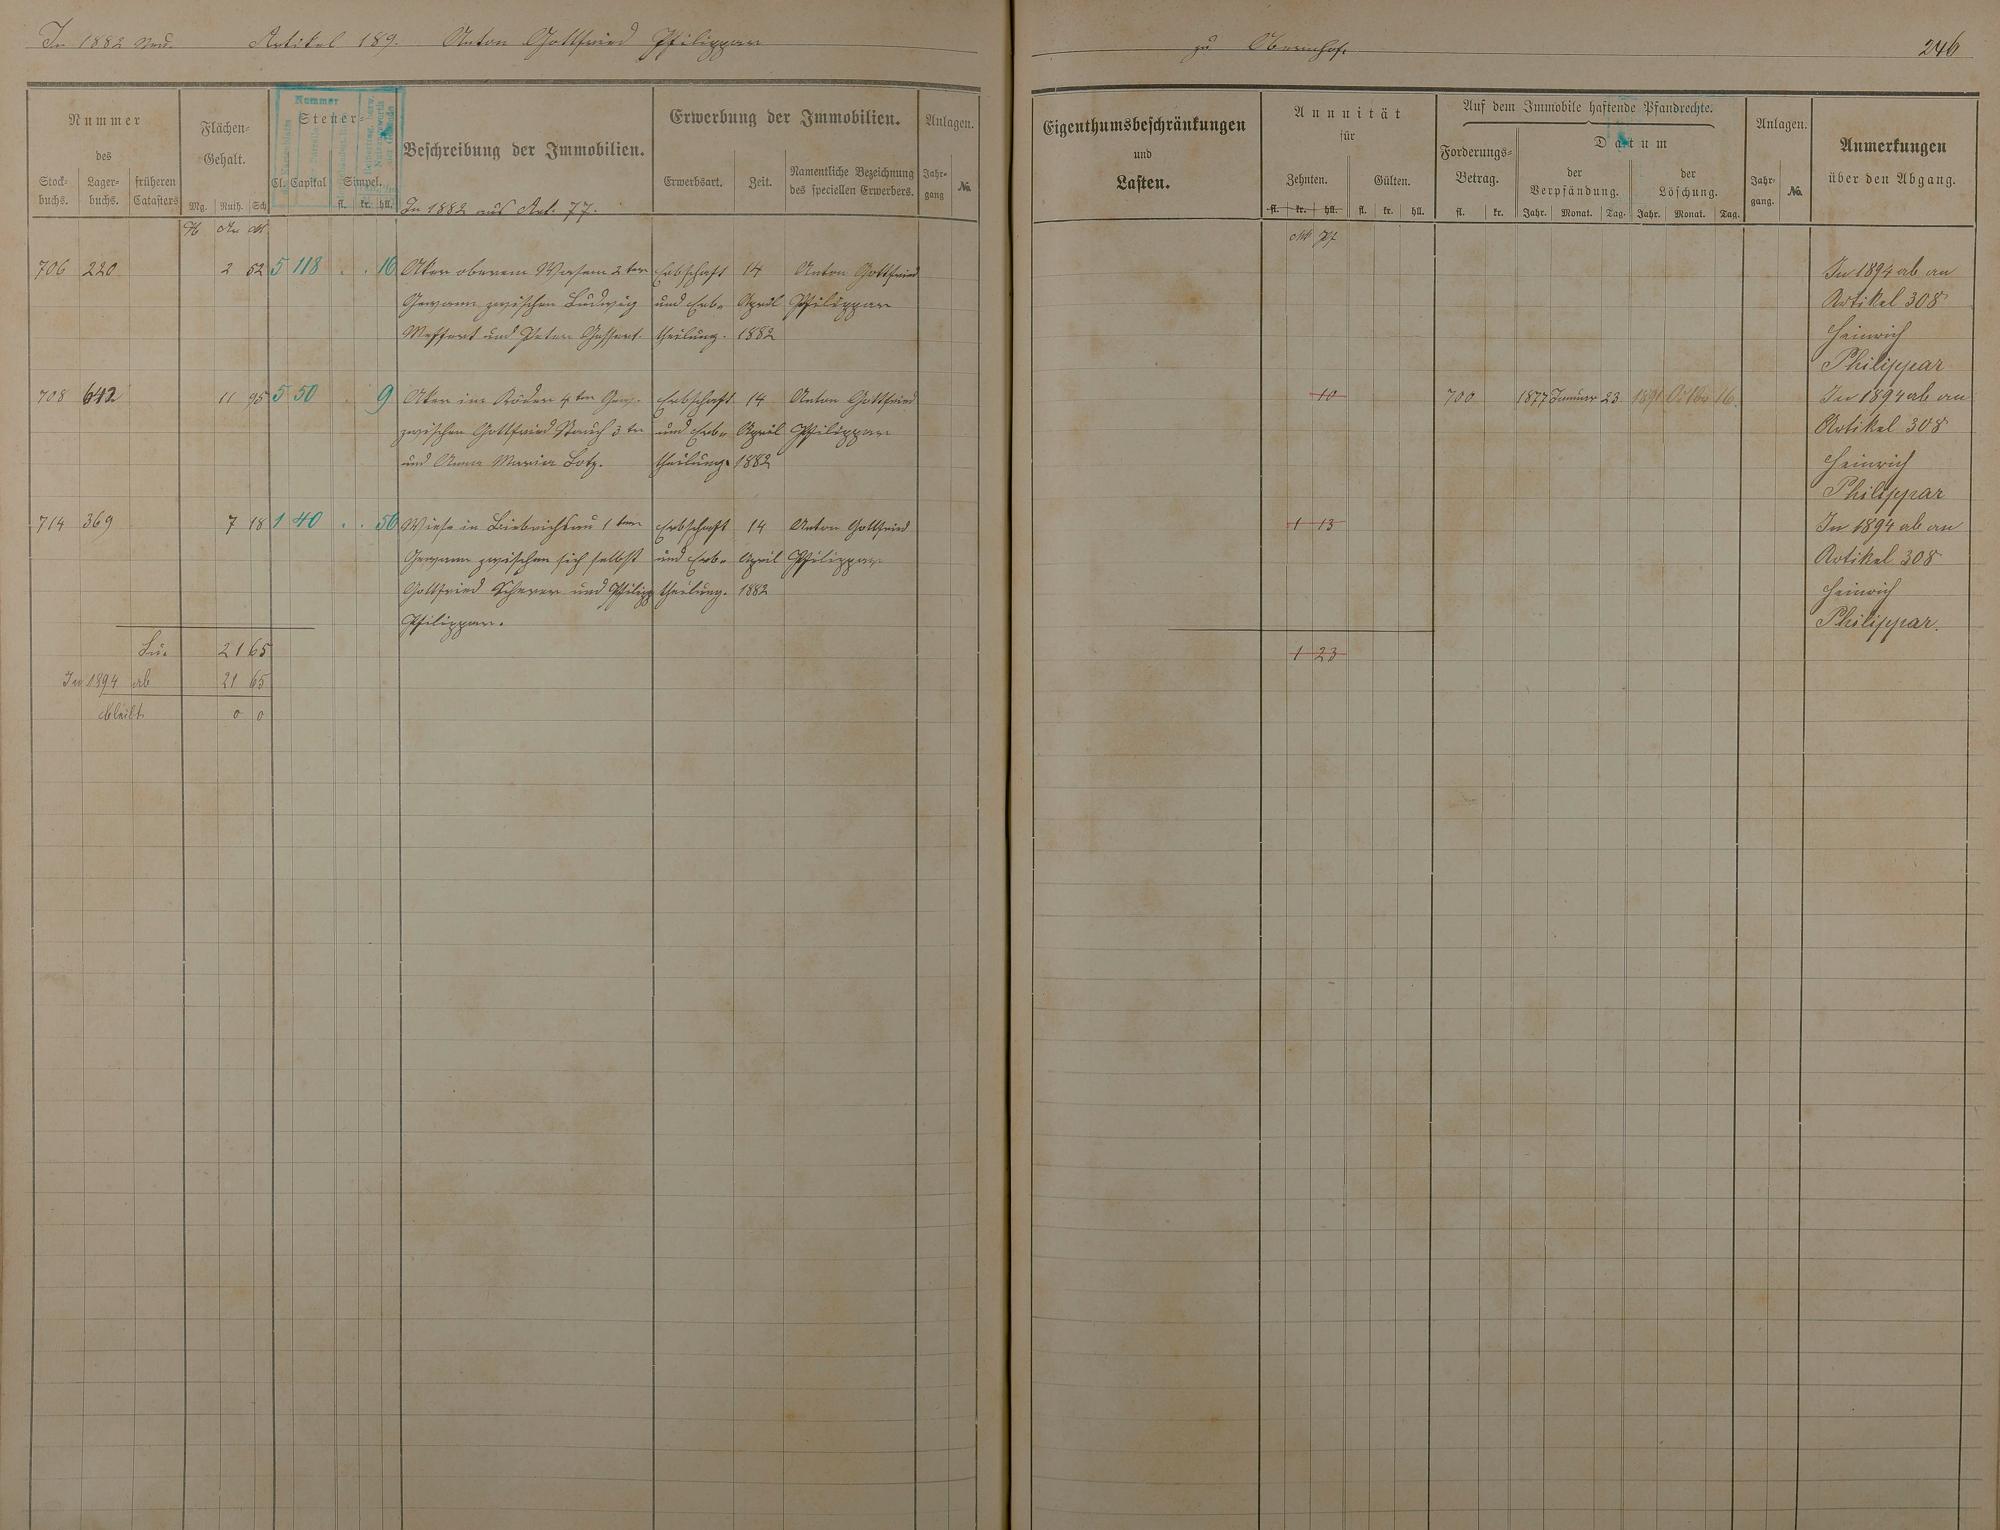 In 1882 neu. Artikel 189. Anton Gottfried Philippar
zu Obernhof. 246
Nummer
des
Stock-
buchs.
Lager-
buchs.
früheren
Catasters
Flächen-
Gehalt.
Mg. Ruth. Sch
Steuer-
Cl. Capital Simpel.
fl. kr. hll.
Nummer
Beschreibung der Immobilien.
In 1882 aus Art. 77.
Erwerbung der Immobilien.
Erwerbsart. Zeit.
Namentliche Bezeichnung
des speciellen Erwerbers.
Anlagen.
Jahr-
gang
No.
Eigenthumsbeschränkungen
und
Lasten.
Annuität
für
Zehnten. Gülten.
fl. kr. hll. fl. kr. hll.
Auf dem Immobile haftende Pfandrechte.
Forderungs-
Betrag.
fl. kr.
Datum
der
Verpfändung.
der
Löschung.
Jahr. Monat. Tag. Jahr. Monat. Tag.
Anlagen.
Jahr-
gang.
No.
Anmerkungen
über den Abgang.
H Ar M
Mk Pf
706 220 2 52 5 118 . . 16 Aker oberem Wasem 2 ter Erbschaft 14 Anton Gottfried In 1894 ab an
Gewann zwischen Ludwig und Erb- April Philippar Artikel 308
Meffert und Peter theilung. 1882 Heinrich
Philippar
708 642 11 95 5 50 . 9 Aker im Röder 4 ter Gew. Erbschaft 14 Anton Gottfried 10 700 1877 Januar 23 1891 16. In 1894 ab an
zwischen Gottfried Stauch 3 ter und Erb- April Philippar Artikel 308
und Anna Maria Lotz. theilung. 1882 Heinrich
Philippar
714 369 7 18 1 40 . . 56 Wiese in Biebrichsau 1 ter Erbschaft 14 Anton Gottfried 1 13 In 1894 ab an
Gewann zwischen sich selbst und Erb- April Philippar Artikel 308
Gottfried Scherer und Philipp theilung. 1882 Heinrich
Philippar. Philippar.
Su. 21 65 1 23
In 1894 ab 21 65
bleibt 0 0